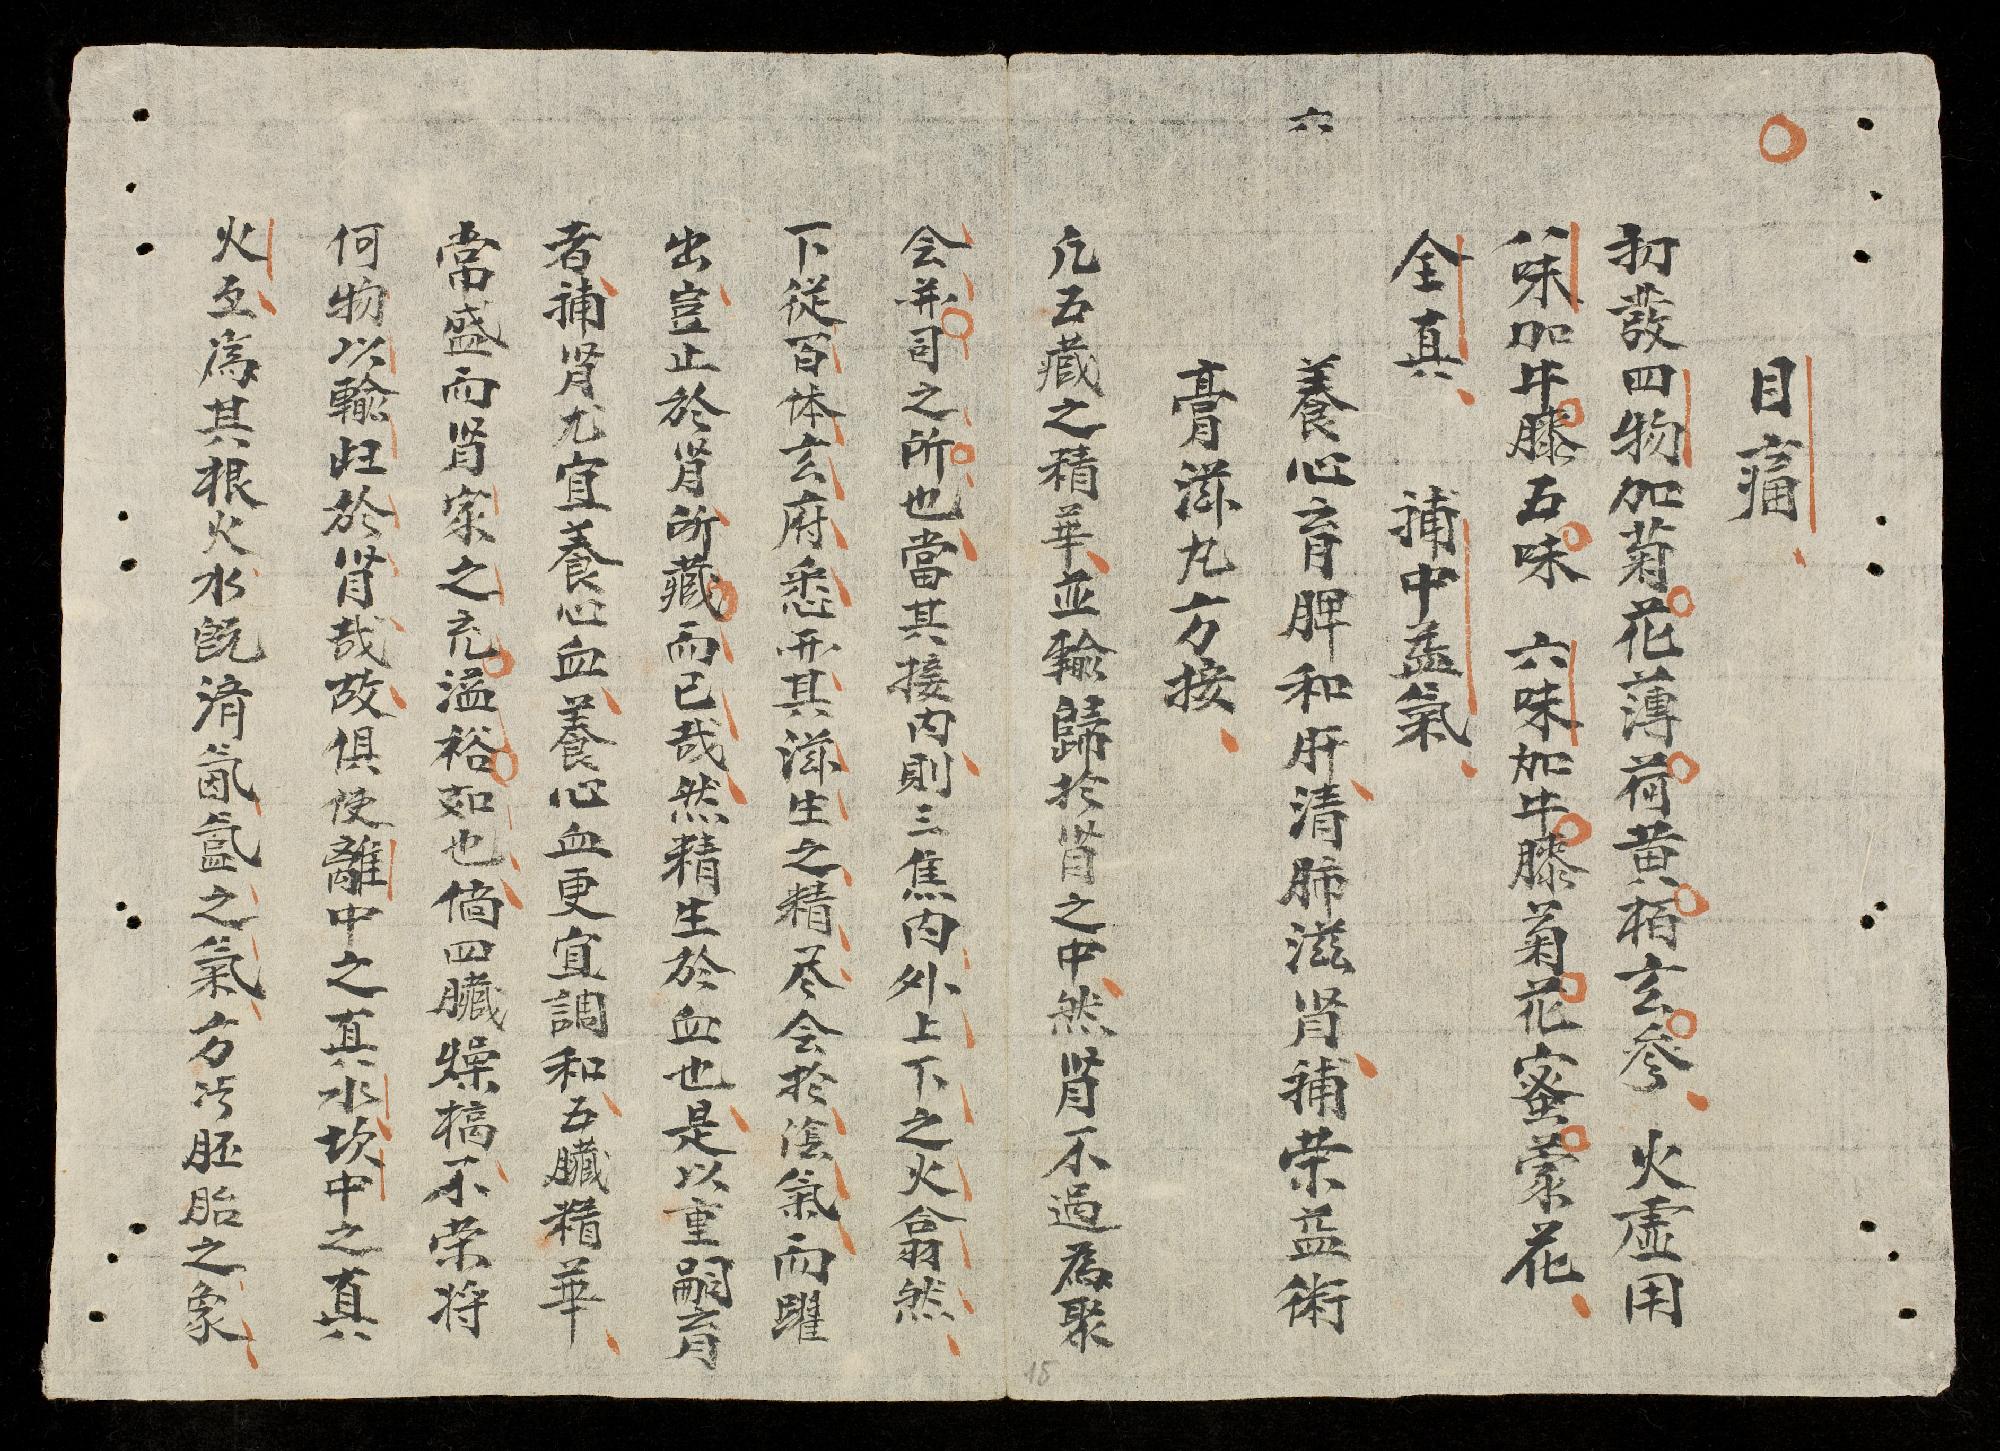 目痛
初發四物加菊花薄荷黄栢玄參 火虚用
八味加牛膝五味 六味加牛膝菊花蜜蒙花
全真 補中益氣
六
養心育脾和肝清肺滋肾補荣益術
膏滋丸方接
凢五蔵之精華並輸歸扵肾之中然肾不過為聚
会并司之所也當其接内則三焦内外上下之火翕然
下従百体玄府悉開其滋生之精尽会扵陰氣而躍
出豈止於肾所藏而已哉然精生於血也是以重嗣育
者補肾尤宜養心血養心血更宜調和五臓精華
當盛而肾家之充溢裕如也倘四臓燥槁不荣将
何物以輸归於肾哉故俱使離中之真水坎中之真
火互為其根火水既済氤氳之氣方以胚胎之象
15